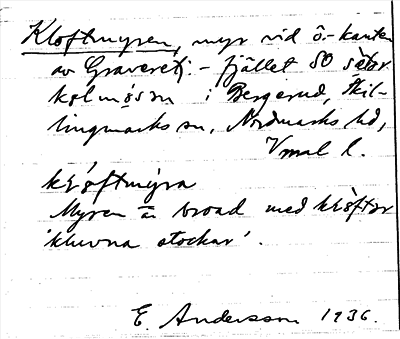 Kloftmyren, myr vid ö-kanten
av Graveretj.-fjället SO säter
kolmossen i Bergerud, Skil-
lingmarks sn, Nordmarks hd,
Vmal l.
klo̍ftmýra
Myren är broad med klo̍fter
'kluvna stockar'.
E. Andersson 1936.